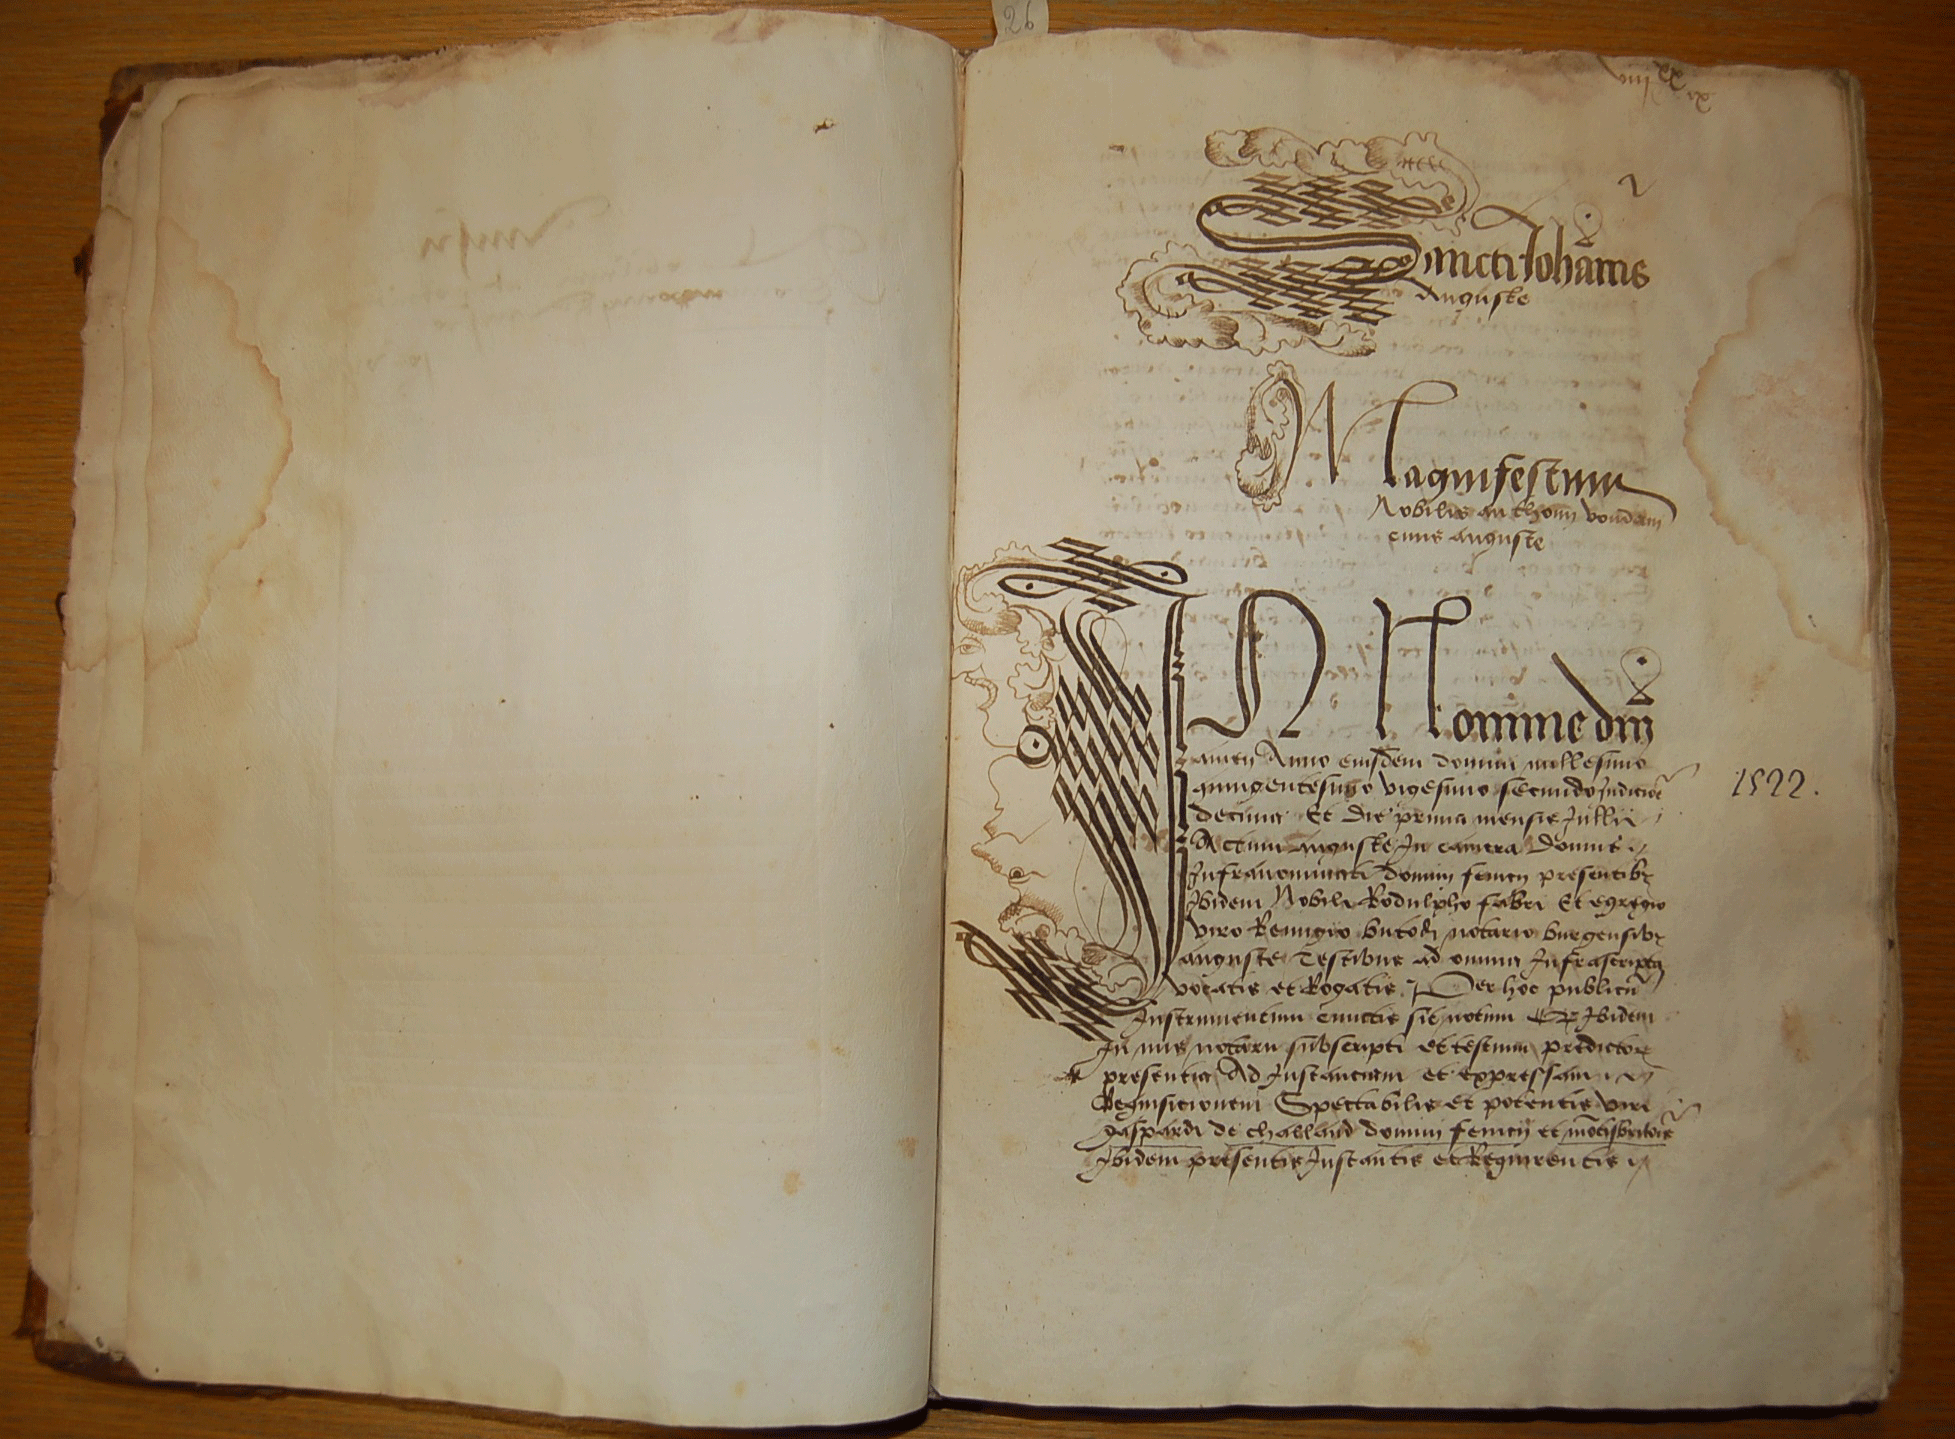 26
iiij xx ix
Sancti Johanis
Auguste
Magnifestum
Nobilis anthonij voudan
civis auguste
IN Nomine dnj
amen Anno eiusdem domini millesimo
quingentesimo vigesimo secundo Indicioe
decima Et die prima mensis Jullii
Actum auguste In camera domus
Infranominati domini fenicij presentibz
Ibidem Nobili Rodulpho fabri Et egregio
viro Remigio butodj notario burgensibz
auguste Testibus ad omnia Infrascripta
vocatis et Rogatis Per hoc publicu
Instrumentum cunctis sit notum Q Ibidem
In mis notarii subscripti et testium predictorz
presentia Ad Instanciam et expressam
Requisicionem Spectabilis et potentis viri
gaspardi de challand domini fenicij et motisbritonis
Ibidem presentis Instantis et Requirentis
1522.